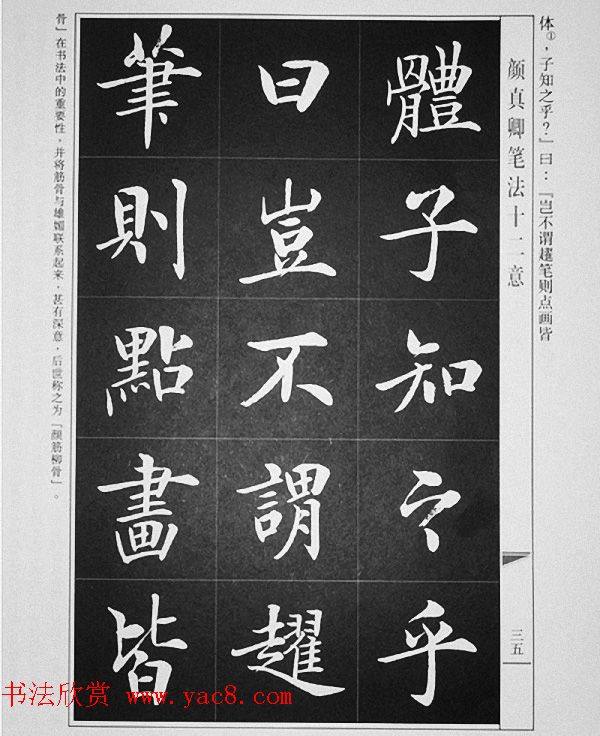 体①，子知之乎？」曰：「岂不谓趯笔则点画皆
颜真卿笔法十二意
三五
體子知之乎
曰豈不謂趯
筆則點畫皆
骨」在书法中的重要性，并将筋骨与雄媚联系起来，甚有深意，后世称之为「颜筋柳骨」。
书法欣赏 www.yac8.com